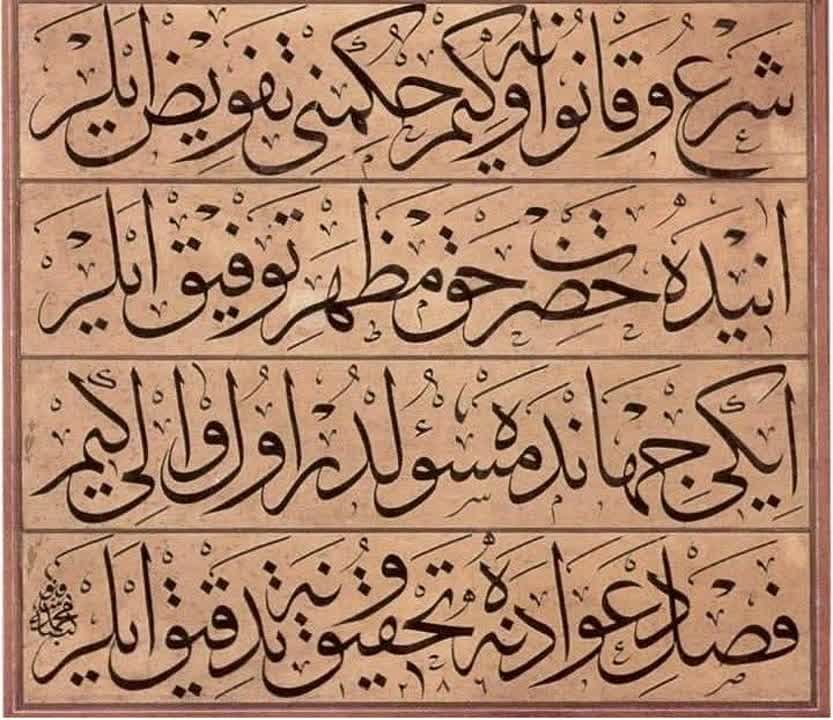 شرع و قانونه او كیم حكمنی تفویض ایلر
انیده حضرت حق مظهر توفیق ایلر
ایكی جهانده مسئولدر اول والی كیم
فصل دعواده نه تحقیق و نه تدقیق ایلر
١٢٨٦